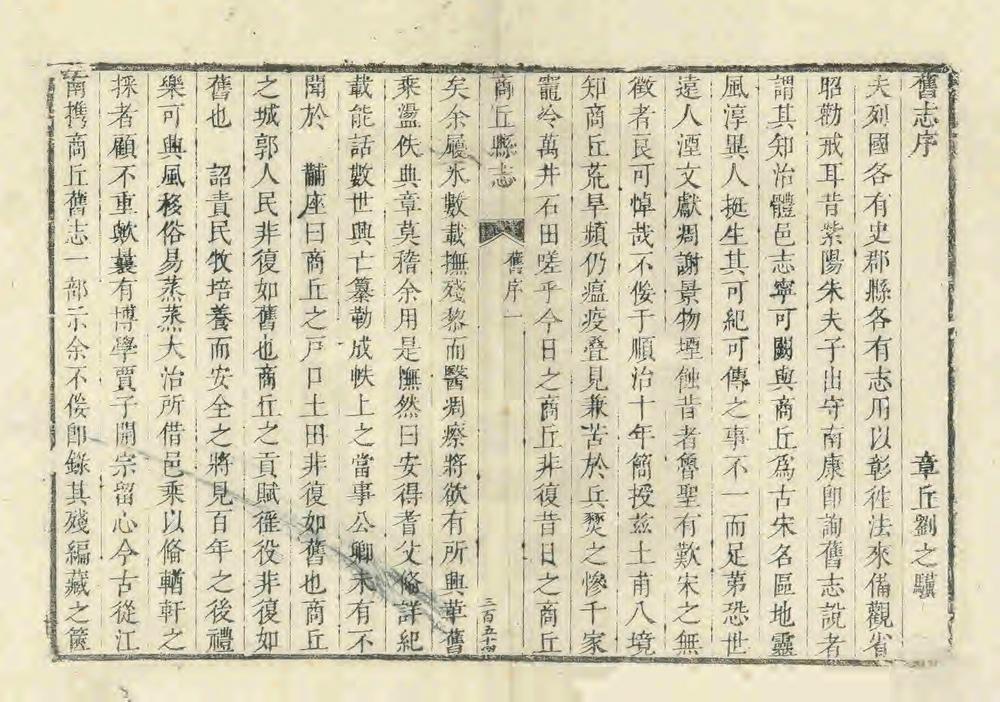 舊志序
章丘劉之驥
夫列國各有史郡縣各有志用以彰徃法來備觀省
昭勸戒耳昔紫陽朱夫子出守南康即詢舊志說者
謂其知治體邑志寧可闕與商丘為古宋名區地靈
風淳異人挺生其可紀可傳之事不一而足第恐世
遠人湮文獻凋謝景物堙蝕昔者魯聖有歎宋之無
徵者良可悼哉不佞于順治十年簡授茲土甫入境
知商丘荒旱頻仍瘟疫叠見兼苦於兵燹之慘千家
竈冷萬井石田嗟乎今日之商丘非復昔日之商丘
商丘縣志
舊序一
三百五十四
矣余履氷數載撫殘黎而醫凋瘵將欲有所興革舊
乘盪佚典章莫稽余用是憮然曰安得耆父脩詳紀
載能話數世興亡纂勒成帙上之當事公卿未有不
聞於 黼座曰商丘之戸口土田非復如舊也商丘
之城郭人民非復如舊也商丘之貢賦徭役非復如
舊也 詔責民牧培養而安全之將見百年之後禮
樂可興風移俗易蒸蒸大治所借邑乘以脩輶軒之
採者顧不重歟曩有博學賈子開宗留心今古從江
南携商丘舊志一部示余不佞即錄其殘編藏之篋